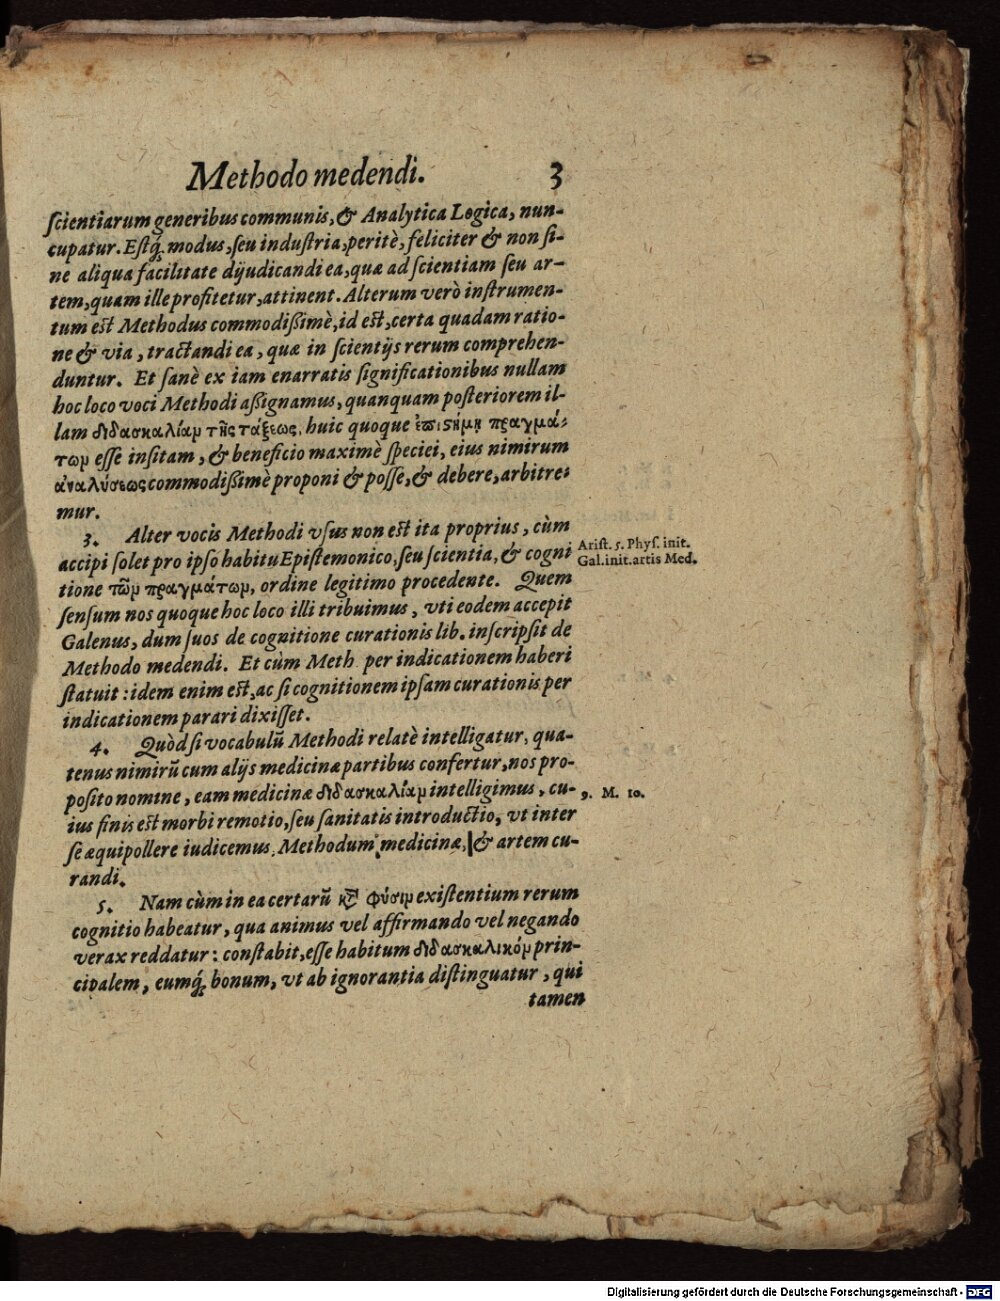 Methodo medendi. 3
ſcientiarum generibus communis, & Analytica Logica, nun-
cupatur. Eſtq́; modus, ſeu induſtria, peritè, feliciter & non ſi-
ne aliqua facilitate dijudicandi ea, quæ ad ſcientiam ſeu ar-
tem, quam ille profitetur, attinent. Alterum verò inſtrumen-
tum eſt Methodus commodißimè, id eſt, certa quadam ratio-
ne & via, tractandi ea, quæ in ſcientijs rerum comprehen-
duntur. Et ſanè ex iam enarratis ſignificationibus nullam
hoc loco voci Methodi aßignamus, quanquam poſteriorem il-
lam διδασκαλίαμ τῆς τάξεως, huic quoque ἐπιϛήμῃ πραγμά-
τωμ eſſe inſitam, & beneficio maximè ſpeciei, eius nimirum
ἀναλύσεως commodißimè proponi & poſſe, & debere, arbitre-
mur.
3. Alter vocis Methodi vſus non eſt ita proprius, cùm
accipi ſolet pro ipſo habitu Epiſtemonico, ſeu ſcientia, & cogni
tione τῶμ πραγμάτωμ, ordine legitimo procedente. Quem
ſenſum nos quoque hoc loco illi tribuimus, vti eodem accepit
Galenus, dum ſuos de cognitione curationis lib. inſcripſit de
Methodo medendi. Et cùm Meth per indicationem haberi
ſtatuit: idem enim eſt, ac ſi cognitionem ipſam curationis per
indicationem parari dixiſſet.
Ariſt. 5. Phyſ. init.
Gal. init. artis Med.
4. Quòd ſi vocabulũ Methodi relatè intelligatur, qua-
tenus nimirũ cum alijs medicinæ partibus confertur, nos pro-
poſito nomine, eam medicinæ διδασκαλίαμ intelligimus, cu-
ius finis eſt morbi remotio, ſeu ſanitatis introductio, vt inter
ſe æquipollere iudicemus, Methodum medicinæ, & artem cu-
randi.
9. M. 10.
5. Nam cùm in ea certarũ κỲ φύσιμ exiſtentium rerum
cognitio habeatur, qua animus vel affirmando vel negando
verax reddatur: conſtabit, eſſe habitum διδασκαλικόμ prin-
cipalem, eumq́; bonum, vt ab ignorantia diſtinguatur, qui
tamen
Digitalisierung gefördert durch die Deutsche Forschungsgemeinschaft - DFG